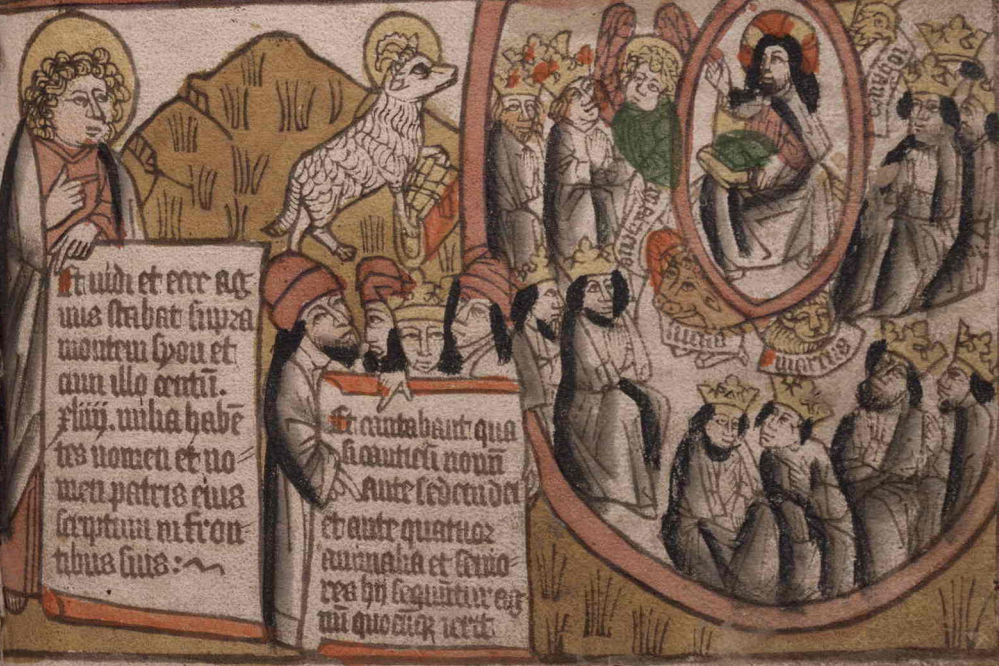 Et uidi et ecce ag
nus stabat supra
montem syon et
cum illo centū.
xliiij. milia habē
tes nomen et no
men patris eius
scriptum in fron
tibus suis :~
Et cantabant qua
si canticū nouū
ante sedem dei
et ante quatuor
animalia et senio
res hij sequūtur ag
nū quocūq ierit
matheus
iohannes
lucas
marcus